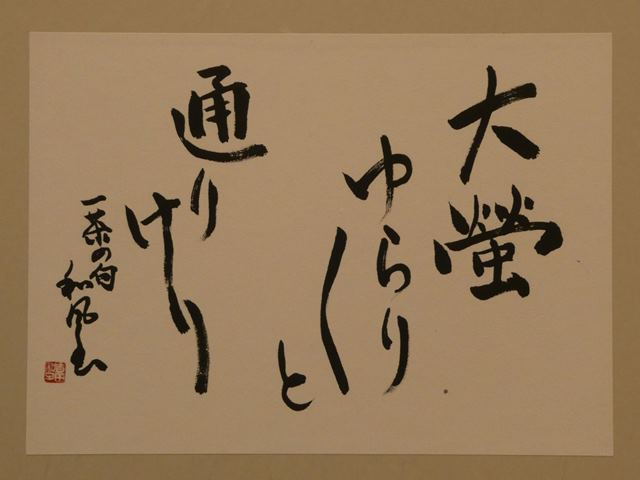 大螢
ゆらり
〱と
通りけり
一茶の句
和風書